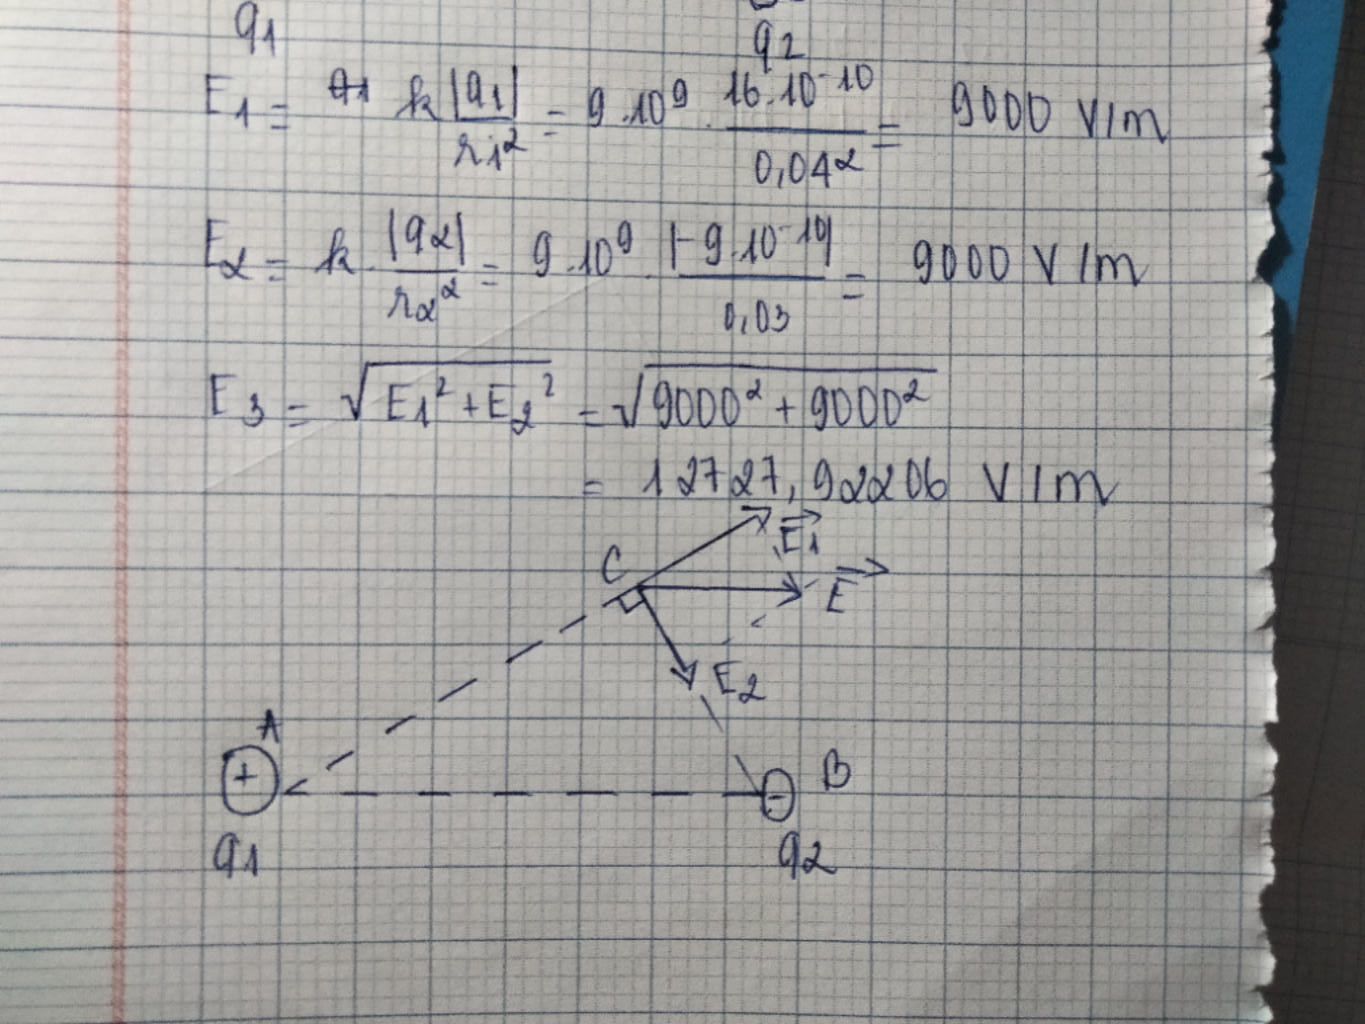 q1 q2
E1 = k |q1| / r1² = 9.10⁹ . 16.10⁻¹⁰ / 0,04² = 9000 V/m
E2 = k . |q2| / r2² = 9.10⁹ . |-9.10⁻¹⁰| / 0,03 = 9000 V/m
E3 = √E1² + E2² = √9000² + 9000²
= 12727,92206 V/m
C E1
E
E2
A
+ - B
q1 q2